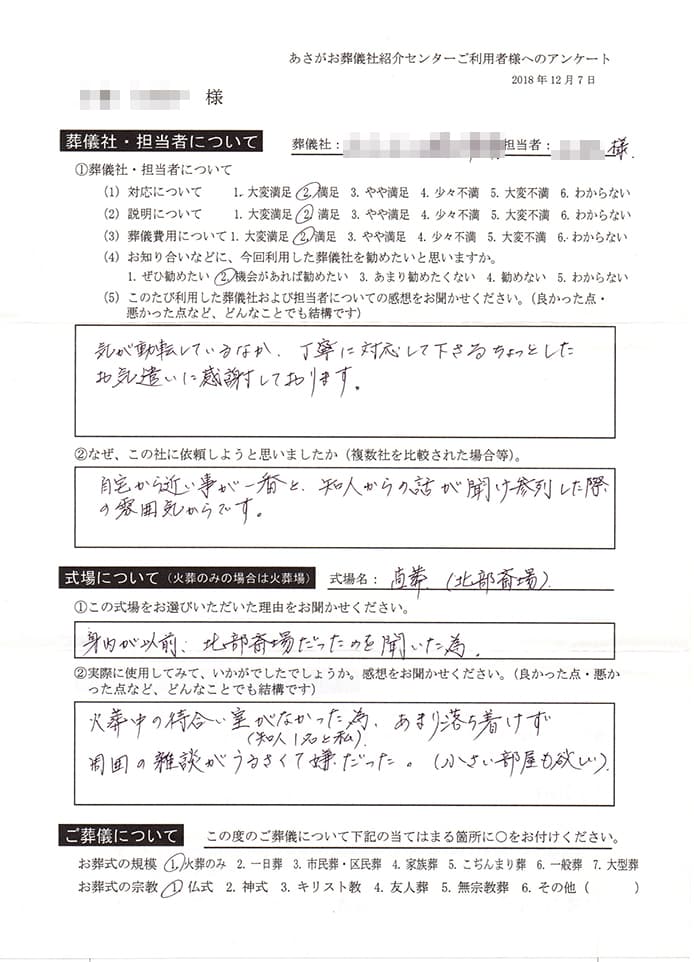 あさがお葬儀社紹介センターご利用者様へのアンケート
2018年12月7日
様
葬儀社・担当者について 葬儀社： 担当者： 様
①葬儀社・担当者について
(1) 対応について 1. 大変満足 2. 満足 3. やや満足 4. 少々不満 5. 大変不満 6. わからない
(2) 説明について 1. 大変満足 2. 満足 3. やや満足 4. 少々不満 5. 大変不満 6. わからない
(3) 葬儀費用について 1. 大変満足 2. 満足 3. やや満足 4. 少々不満 5. 大変不満 6. わからない
(4) お知り合いなどに、今回利用した葬儀社を勧めたいと思いますか。
1. ぜひ勧めたい 2. 機会があれば勧めたい 3. あまり勧めたくない 4. 勧めない 5. わからない
(5) このたび利用した葬儀社および担当者についての感想をお聞かせください。（良かった点・
悪かった点など、どんなことでも結構です）
気が動転しているなか、丁寧に対応して下さるちょっとした
お気遣いに感謝しております。
②なぜ、この社に依頼しようと思いましたか（複数社を比較された場合等）。
自宅から近い事が一番と、知人からの話が聞け参列した際
の雰囲気からです。
式場について（火葬のみの場合は火葬場） 式場名： 直葬（北部斎場）
①この式場をお選びいただいた理由をお聞かせください。
身内が以前、北部斎場だったのを聞いた為。
②実際に使用してみて、いかがでしたでしょうか。感想をお聞かせください。（良かった点・悪か
った点など、どんなことでも結構です）
火葬中の待合い室がなかった為、あまり落ち着けず
（知人1名と私）
周囲の雑談がうるさくて嫌だった。（小さい部屋も欲しい）
ご葬儀について この度のご葬儀について下記の当てはまる箇所に○をお付けください。
お葬式の規模 1. 火葬のみ 2. 一日葬 3. 市民葬・区民葬 4. 家族葬 5. こぢんまり葬 6. 一般葬 7. 大型葬
お葬式の宗教 1. 仏式 2. 神式 3. キリスト教 4. 友人葬 5. 無宗教葬 6. その他（ ）